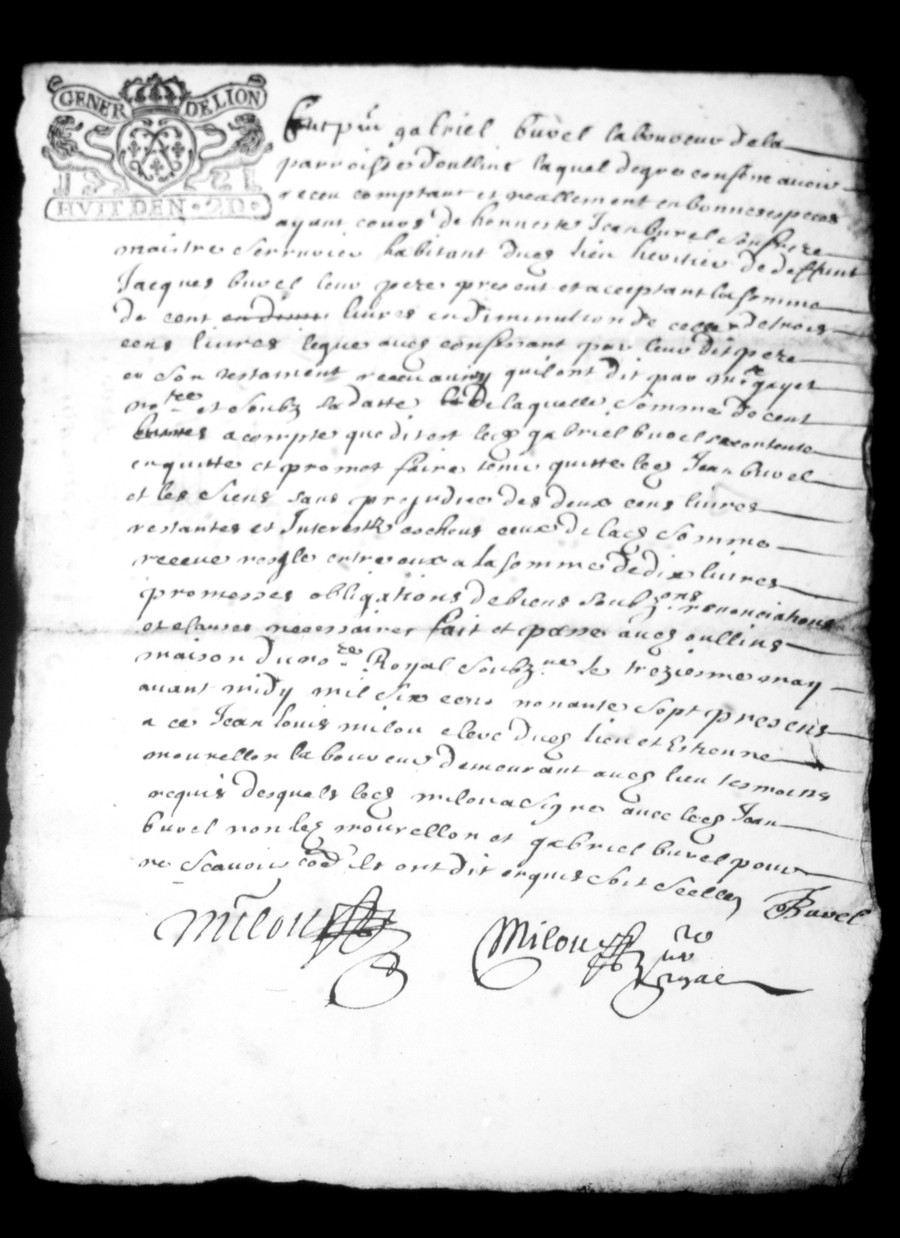 GENER DE LION
HVIT DEN 2D
gabriel buvel laboureur de la
parroisse doullins laquel degre confesse avoir
receu comptant et reallement en bonnes especes
ayant cours de honneste Jean buvel son frere
maistre Serrurier habitant dud lieu heritier de deffunt
Jacques buvel leur pere present et acceptant la somme
de cent livres en diminution de celle de trois
cens livres legue aud confessant par leur dit pere
en son testament receu ainsy quil ont dit par me gayet
nore et soubz sa datte de laquelle somme de cent
livres a compte que dit est led gabriel buvel se contente
en quitte et promet faire tenir quitte led Jean buvel
et les siens sans prejudice des deux cens livres
restantes et Interestz escheus ceux de lad somme
receue regle entre eux a la somme de dix livres
promesses obligations de biens soubzons renonciations
et clauses necessaires fait et passe aud oullins
maison du nore Royal soubzne le treziesme may
avant midy mil six cens nonante sept presens
a ce Jean louis milou eleve dud lieu et Estienne
mourellon laboureur demeurant aud lieu tesmoins
requis desquels led milou a signe avec led Jean
buvel non led mourellon et gabriel buvel pour
ne scavoir comme ils ont dit enquis soit scelle
JBuvel
Milou
Milou
royal